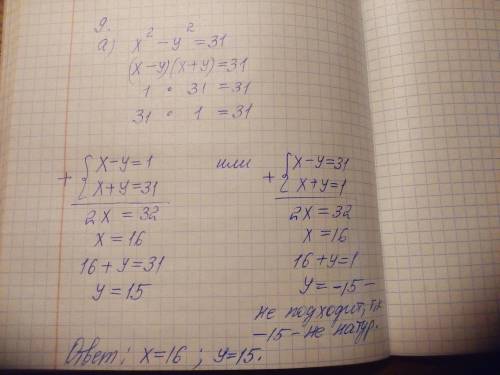 9.
а) x² - y² = 31
(x-y)(x+y) = 31
1 • 31 = 31
31 • 1 = 31
+ { x-y = 1
x+y = 31
2x = 32
x = 16
16 + y = 31
y = 15
или
+ { x-y = 31
x+y = 1
2x = 32
x = 16
16+y = 1
y = -15 -
не подходит, т.к.
-15 - не натур.
Ответ: x=16; y=15.